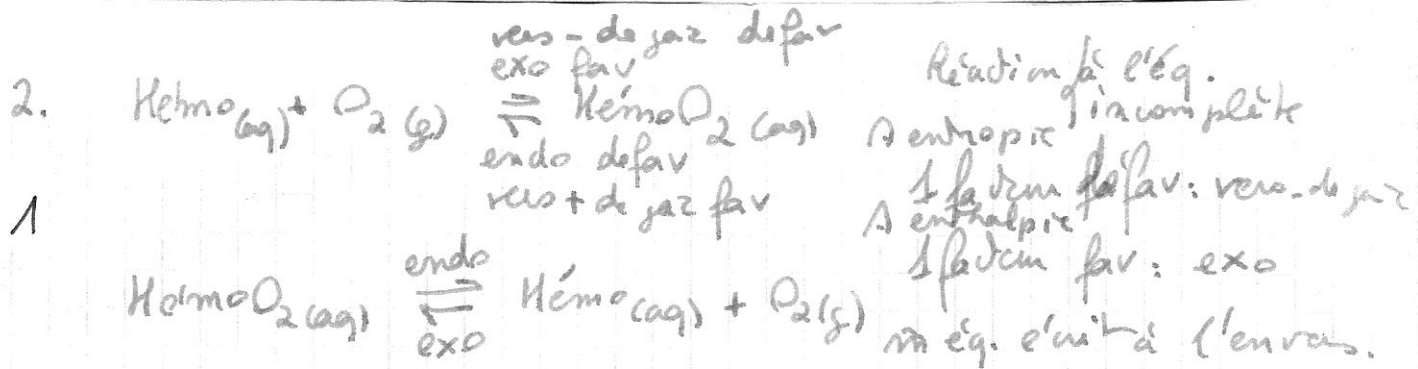 vers - de gaz défav
exo fav
2. Hémo(aq) + O2 (g) ⇌ HémoO2 (aq)
endo défav
vers + de gaz fav
Réaction à l'éq.
incomplète
Δ entropie
1 facteur défav : vers - de gaz
Δ enthalpie
1 facteur fav : exo
1
endo
HémoO2 (aq) ⇌ Hémo (aq) + O2 (g)
exo
m éq. écrit à l'envers.